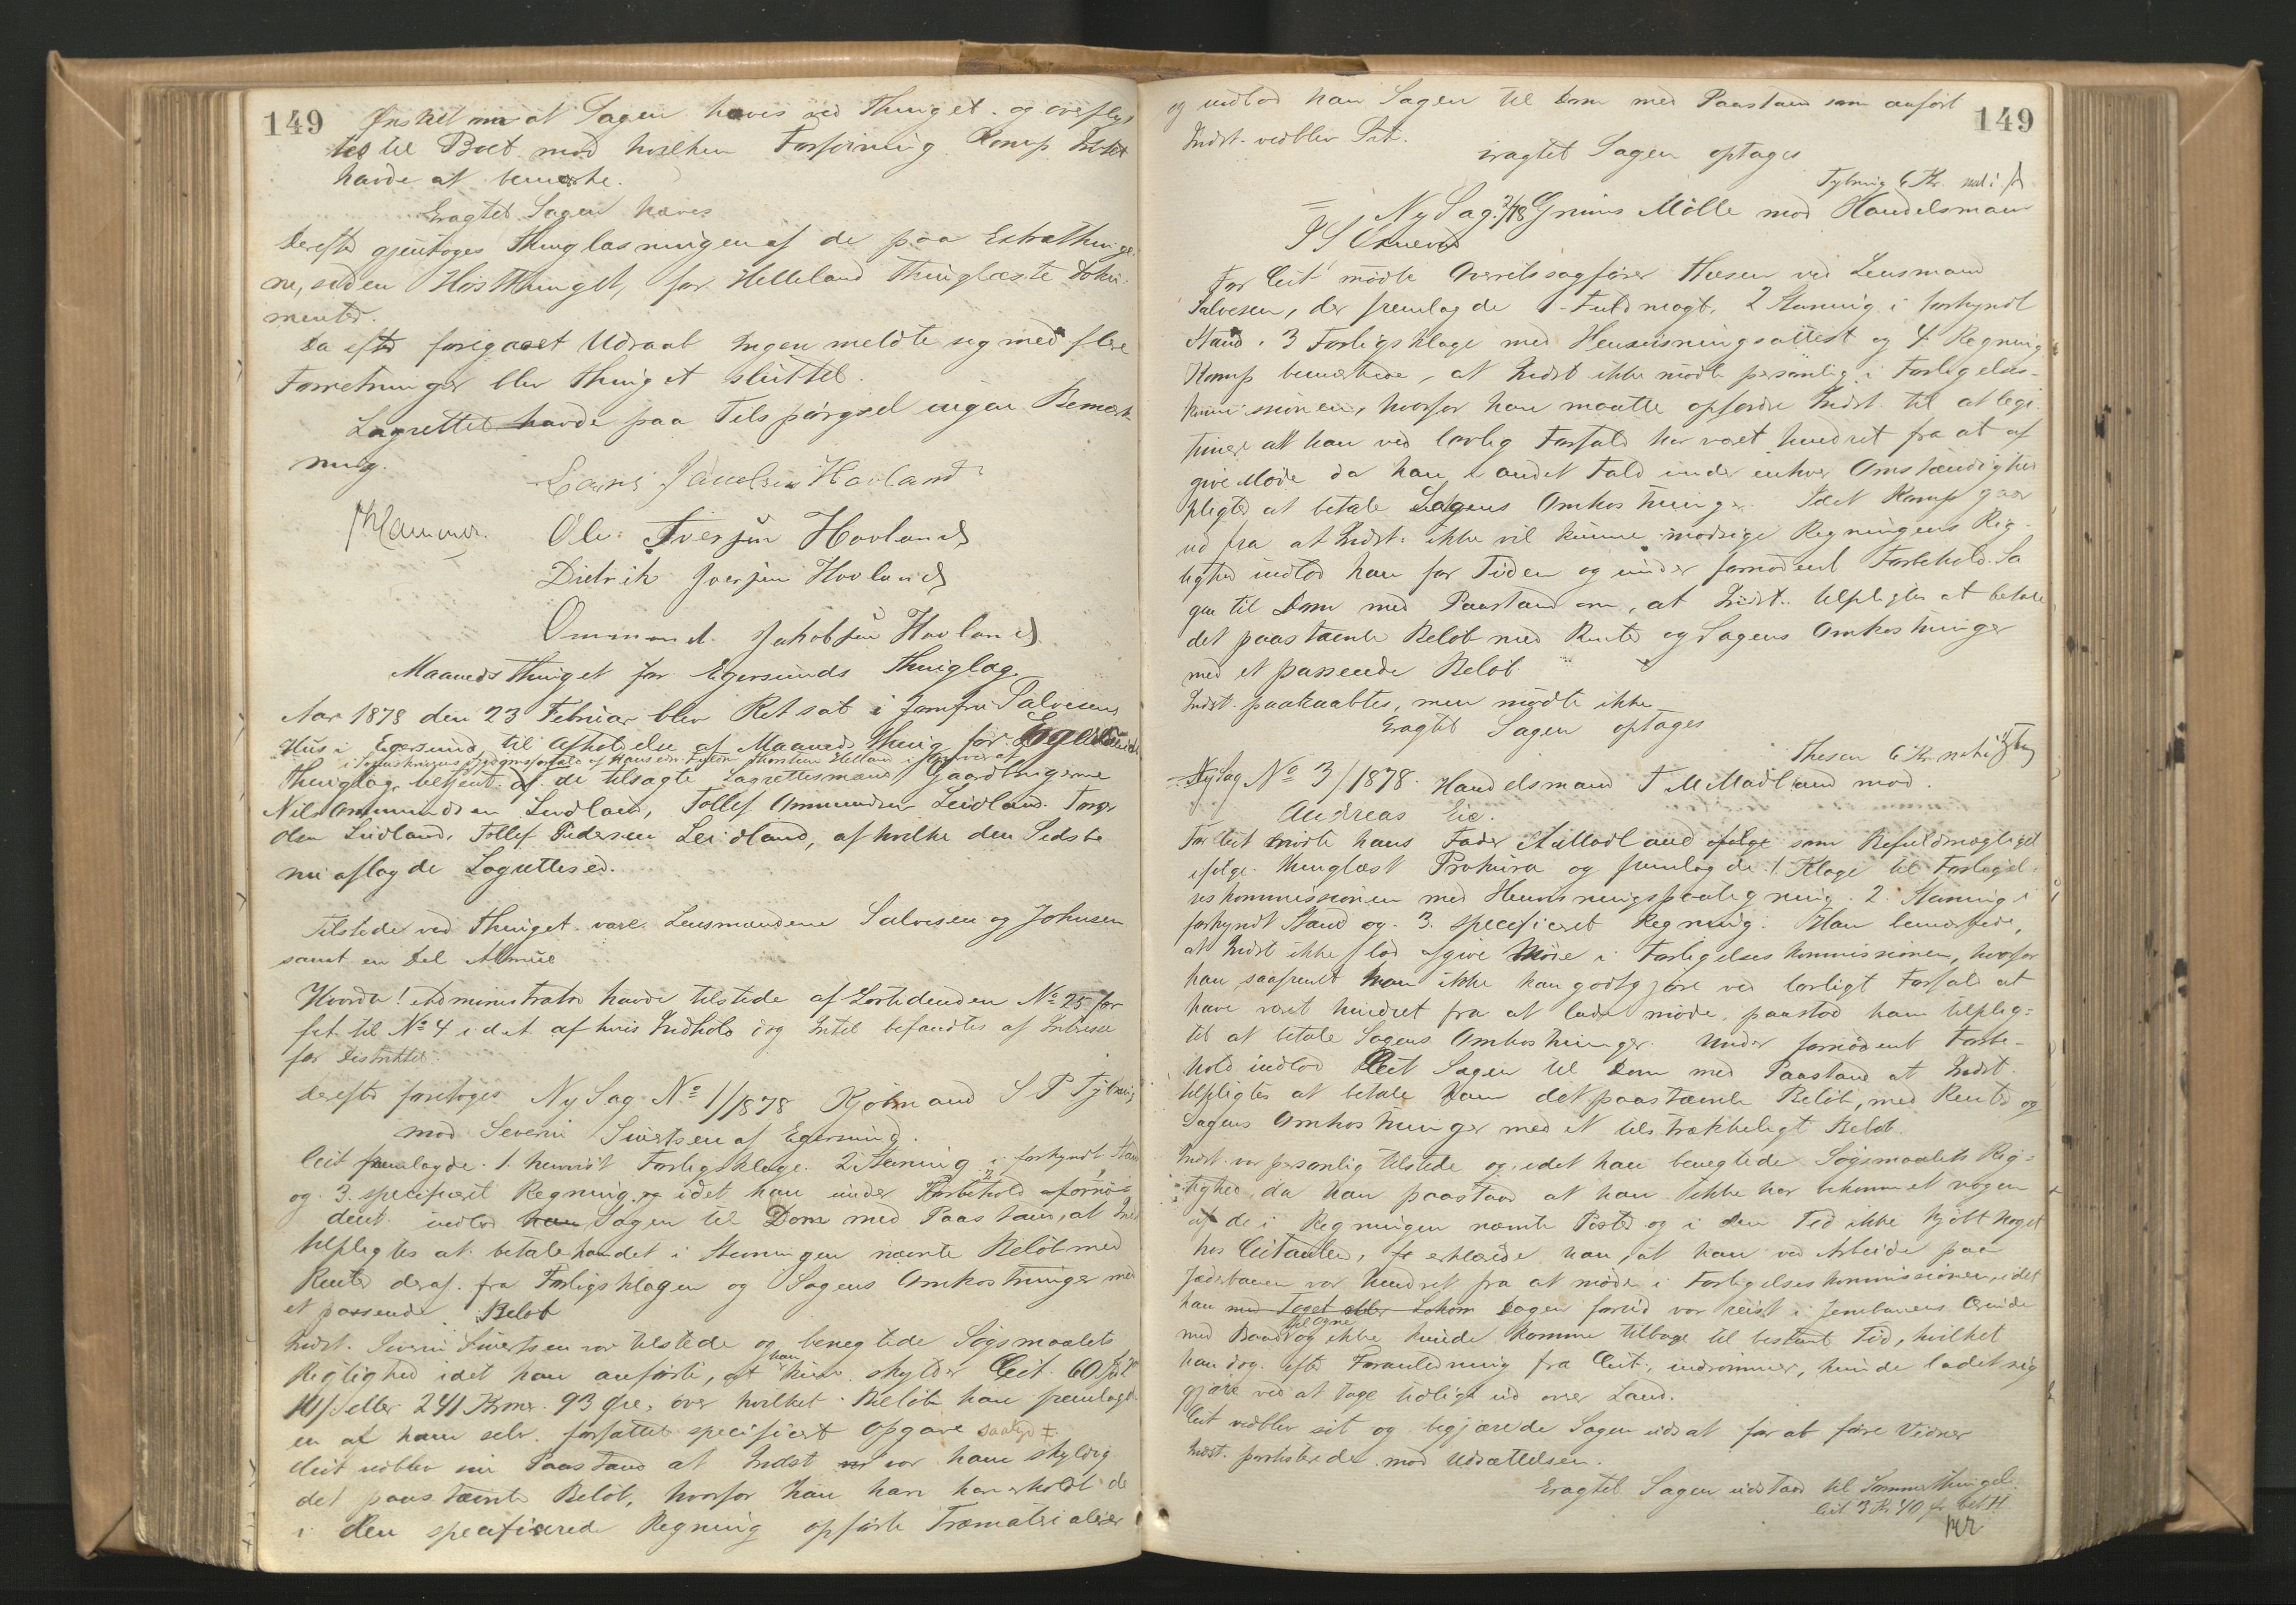 149
Ønsket om at Sagen hæves ved Thinget og overflyt
tes til Boet mod hvilken Forføining Komp. Intet
havde at bemærke.
Eragtet Sagen hæves
Derefter gjentoges Thinglæsningen af de paa Extrathinge
ne, siden Høstthinget, for Helleland thinglæste Doku-
menter.
Da efter foregaaet Udraab Ingen meldte sig med flere
Forretninger blev Thinget sluttet.
Lagrettet havde paa Tilspørgsel ingen Bemærk-
ning.
Hovland
Ole Iversen Hovland
Didrik Iversen Hovland
Ommund Jakobsen Hovland
Maanedsthinget for Egersunds Thinglag.
Aar 1878 den 23 Februar blev Ret sat i Jomfru Salvesens
Hus i Egersund, til Afholdelse af Maanedsthing for Egersunds
i af hans
Thinglag, betjent af de tilsagte Lagrettesmænd Gaardbrugerne
Nils Ommundsen Leidland, Tollef Ommundsen Leidland,
Olsen Leidland, Tollef Pedersen Leidland, af hvilke den Sidste
nu aflagde Lagrettesed.
Tilstede ved Thinget vare Lensmændene Salvesen og Johnsen
samt en Del Almue
Hvorda! Administrator havde tilstede af Lovtidenden No 25 for
f. A. til No 4 i d. A. af hvis Indhold dog Intet befandtes af Interesse
for Distriktet.
Derefter foretoges Ny Sag No 1/1878 Kjøbmand S P Tytning
mod Severin Sivertsen af Egersund.
Cit fremlagde 1. henvist Forligsklage 2 Stævning i forkyndt Stand
og 3. specificeret Regning, og idet han under Forbehold afornø-
dent indlod han Sagen til Dom med Paastand, at Indst
tilpligtes at betale ham det i Stævningen nævnte Beløb med
Renter deraf fra Forligsklagen og Sagens Omkostninger med
et passende Beløb
Indst. Severin Sivertsen var tilstede og benegtede Søgsmaalets
Rigtighed idet han anførte, at han kun skylder Cit. 60
eller 241 Kroner 93 Øre, over hvilket Beløb han fremlagde
en af ham selv forfattet specificeret Opgave
Cit vedblev sin Paastand at Indst var ham skyldig
det paastævnte Beløb, hvorfor han har erholdt de
i den specificerede Regning opførte Træmaterialier
149
og indlod han Sagen til Dom med Paastand som anført
Indst. vedblev Sit.
Eragtet Sagen optages
Tytning 6 Kr.
Ny Sag 2/78 Grüns Mølle mod Handelsmand
For Cit mødte Overretssagfører Thesen ved Lensmand
Salvesen, der fremlagde 1. Fuldmagt, 2 Stævning i forkyndt
Stand, 3 Forligsklage med Henvisningsattest og 4. Regning
Komp bemærkede, at Indst ikke mødte personlig i Forligelses-
kommissionen, hvorfor han maatte opfordre Indst. til at legi-
timere at han ved lovlig Forfald har været hindret fra at af
give Møde da han i andet Fald under enhver Omstændighed
pligter at betale Sagens Omkostninger. Idet Komp gaar
ud fra at Indst. ikke vil kunne modsige Regningens Rig-
tighed indlod han for Tiden og under fornødent Forbehold Sa
gen til Dom med Paastand om, at Indst. tilpligtes at betale
det paastævnte Beløb med Renter og Sagens Omkostninger
med et passende Beløb.
Indst. paaraabtes, men mødte ikke
Eragtet Sagen optages
Thesen 6 Kr.
Ny Sag No 3/1878. Handelsmand T M Madland mod
Andreas Eie.
For Cit mødte hans Fader Madland ifølge som Befuldmægtiget
ifølge thinglæst Prokura og fremlagde 1. Klage til Forligel-
seskommissionen med Henvisningspaategning 2. Stævning i
forkyndt Stand og 3. specificeret Regning. Han bemærkede,
at Indst ikke lod afgive Møde i Forligelseskommissionen, hvorfor
han saafremt han ikke kan godtgjøre ved lovligt Forfald at
have været hindret fra at lade møde, paastod ham tilplig-
tet at betale Sagens Omkostninger. Under fornødent Forbe-
hold indlod Cit Sagen til Dom med Paastand at Indst.
tilpligtes at betale ham det paastævnte Beløb, med Renter og
Sagens Omkostninger med et tilstrækkeligt Beløb.
Indst. var personlig tilstede og idet han benegtede Søgsmaalets Rig-
tighed, da han paastaar at han ikke har bekommet nogen
af de i Regningen nævnte Poster og i den Tid ikke kjøbt Noget
hos Citanten, erklærede han, at han ved Arbeide paa
Jæderbanen var hindret fra at møde i Forligelseskommissionen, idet
han med Toget eller Dagen forud var reist i Jernbanens Ærinde
med Baad til Ogne og ikke kunde komme tilbage til bestemt Tid, hvilket
han dog efter Foranledning fra Cit., indrømmer, kunde ladet sig
gjøre ved at tage tidligt ud over Land.
Cit vedblev sit og begjærede Sagen udsat for at føre Vidner
Indst. protesterede mod Udsættelsen.
Eragtet Sagen udstaar til Sommerthinget.
Cit 3 Kr 40